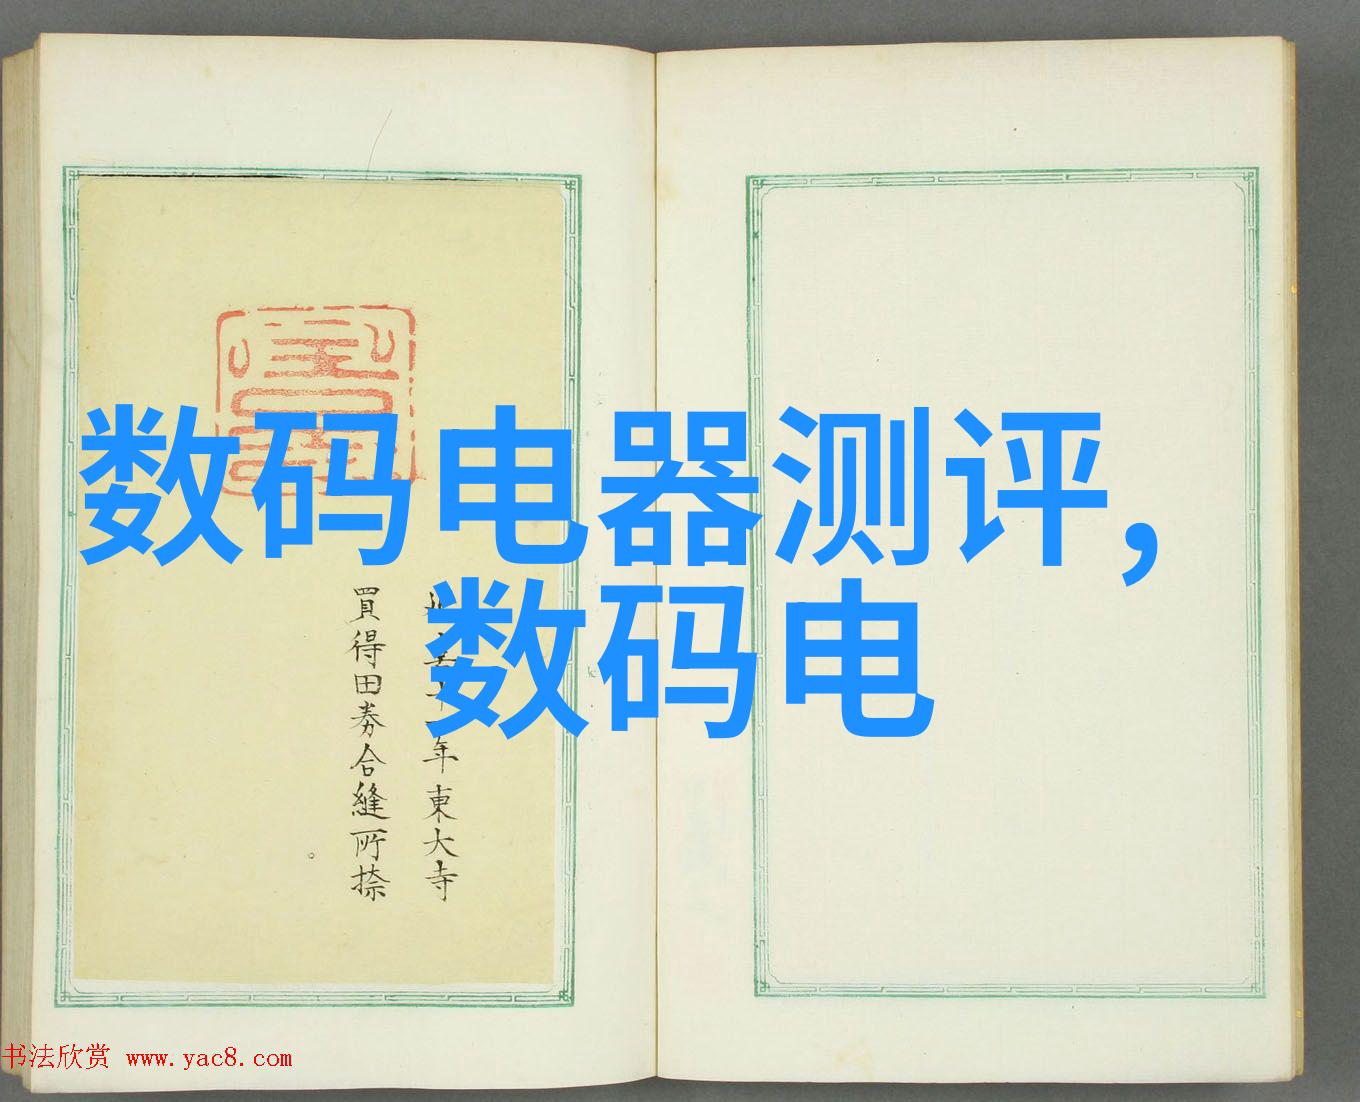 数码电器测评,
数码电
年東大寺
買得田券合縫所捺
书法欣赏 www.yac8.com